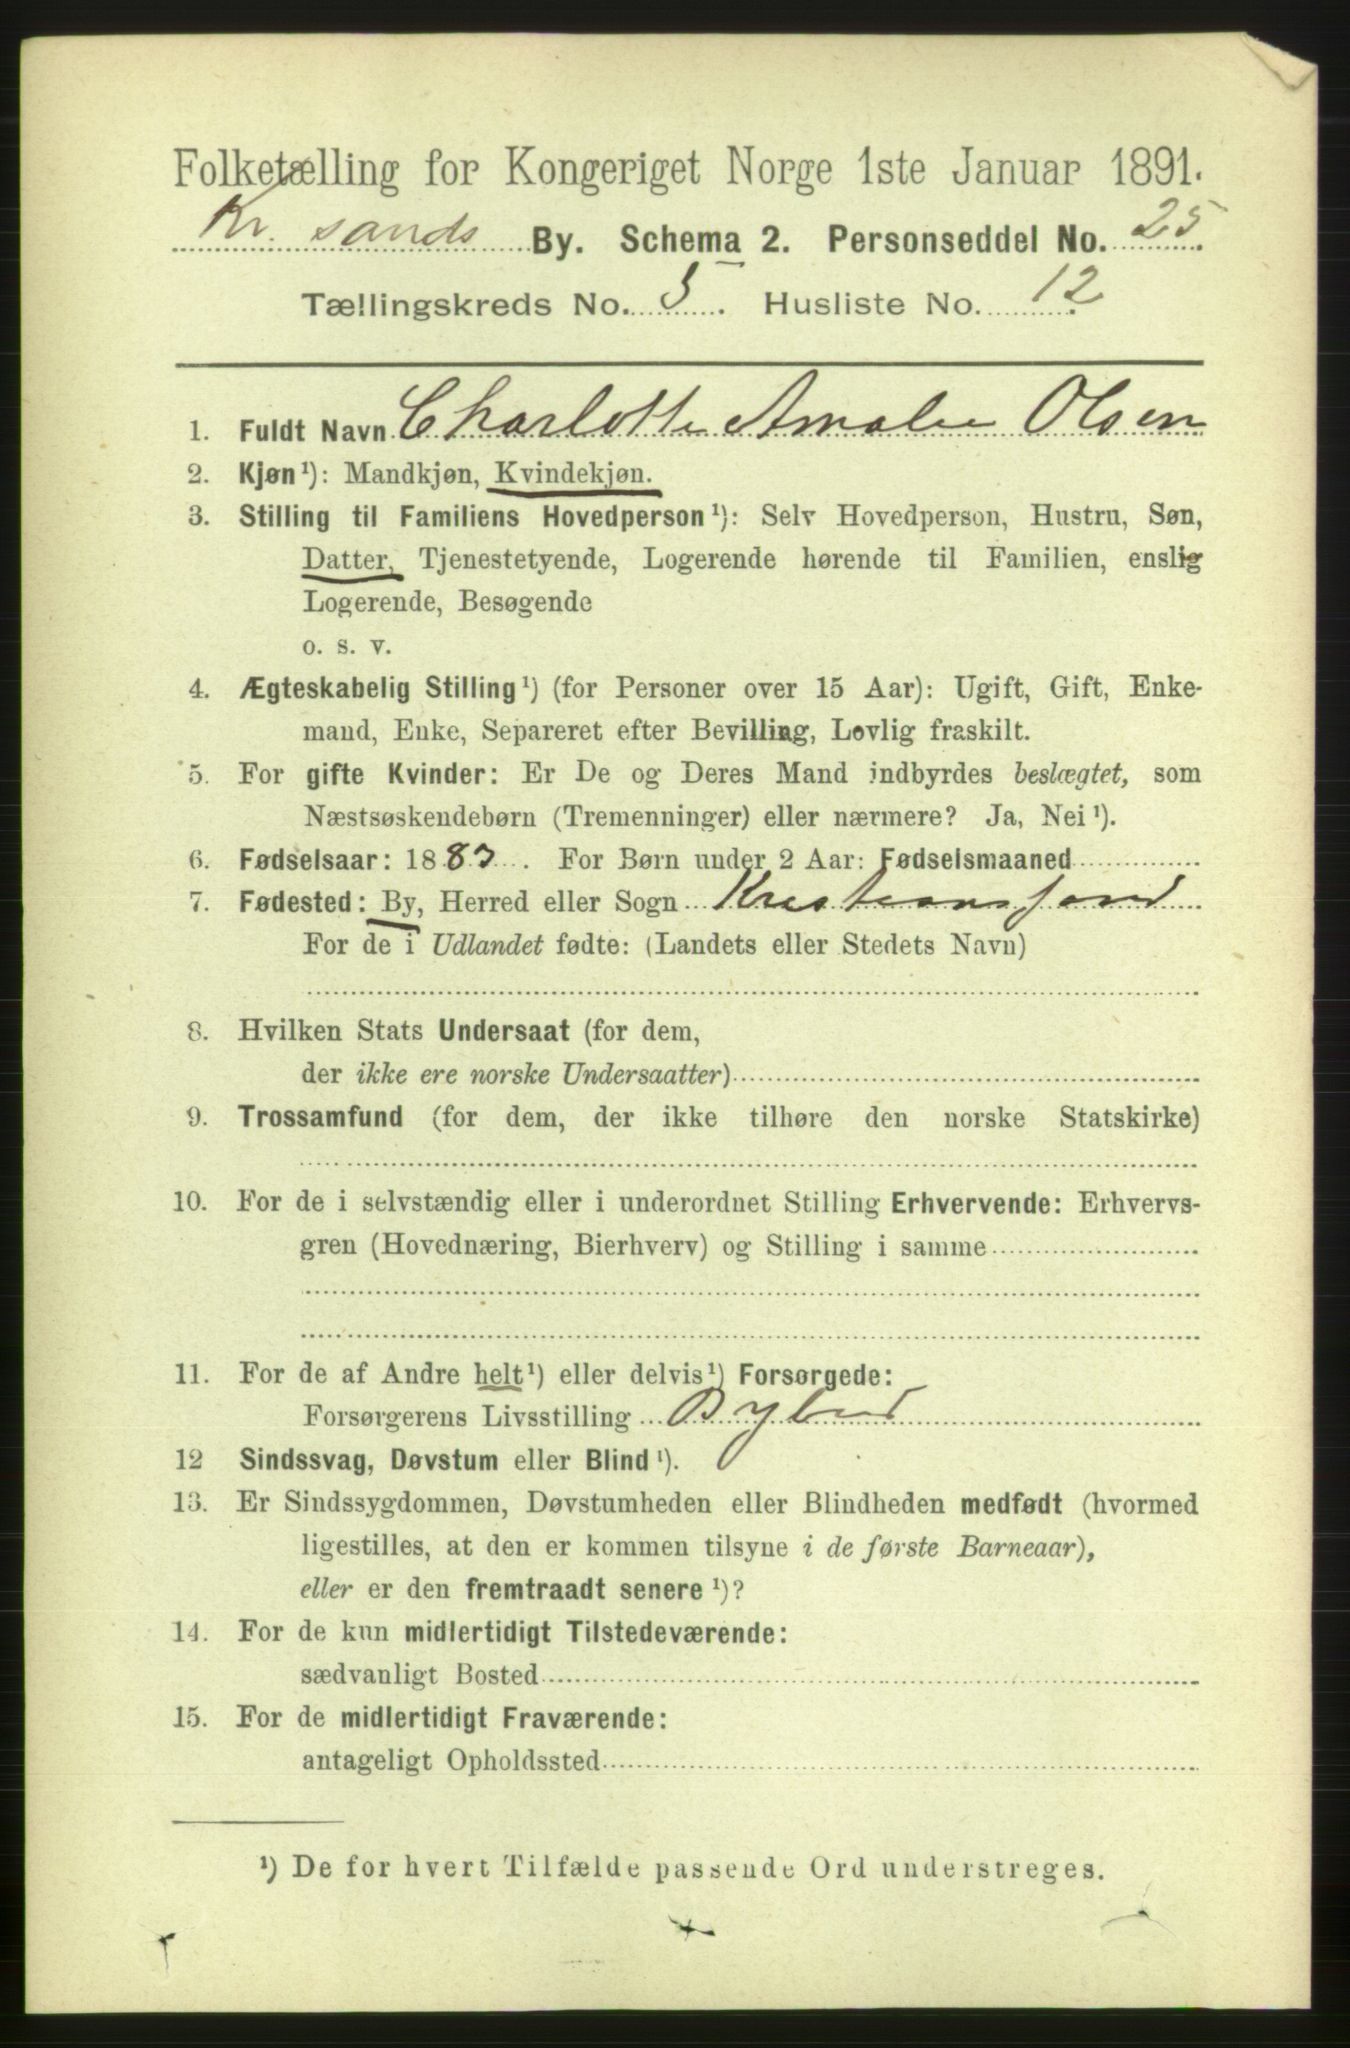 Folketælling for Kongeriget Norge 1ste Januar 1891.
Kr. sands By. Schema 2. Personseddel No. 25.
Tællingskreds No. 5. Husliste No. 12.
1. Fuldt Navn Charlotte Amalie Olsen
2. Kjøn¹): Mandkjøn, Kvindekjøn.
3. Stilling til Familiens Hovedperson¹): Selv Hovedperson, Hustru, Søn,
Datter, Tjenestetyende, Logerende hørende til Familien, enslig
Logerende, Besøgende
o. s. v.
4. Ægteskabelig Stilling¹) (for Personer over 15 Aar): Ugift, Gift, Enke-
mand, Enke, Separeret efter Bevilling, Lovlig fraskilt.
5. For gifte Kvinder: Er De og Deres Mand indbyrdes beslægtet, som
Næstsøskendebørn (Tremenninger) eller nærmere? Ja, Nei¹).
6. Fødselsaar: 1883. For Børn under 2 Aar: Fødselsmaaned
7. Fødested: By, Herred eller Sogn Kristianssand
For de i Udlandet fødte: (Landets eller Stedets Navn)
8. Hvilken Stats Undersaat (for dem,
der ikke ere norske Undersaatter)
9. Trossamfund (for dem, der ikke tilhøre den norske Statskirke)
10. For de i selvstændig eller i underordnet Stilling Erhvervende: Erhvervs-
gren (Hovednæring, Bierhverv) og Stilling i samme
11. For de af Andre helt¹) eller delvis¹) Forsørgede:
Forsørgerens Livsstilling Bybud
12 Sindssvag, Døvstum eller Blind¹).
13. Er Sindssygdommen, Døvstumheden eller Blindheden medfødt (hvormed
ligestilles, at den er kommen tilsyne i de første Barneaar),
eller er den fremtraadt senere¹)?
14. For de kun midlertidigt Tilstedeværende:
sædvanligt Bosted
15. For de midlertidigt Fraværende:
antageligt Opholdssted
¹) De for hvert Tilfælde passende Ord understreges.